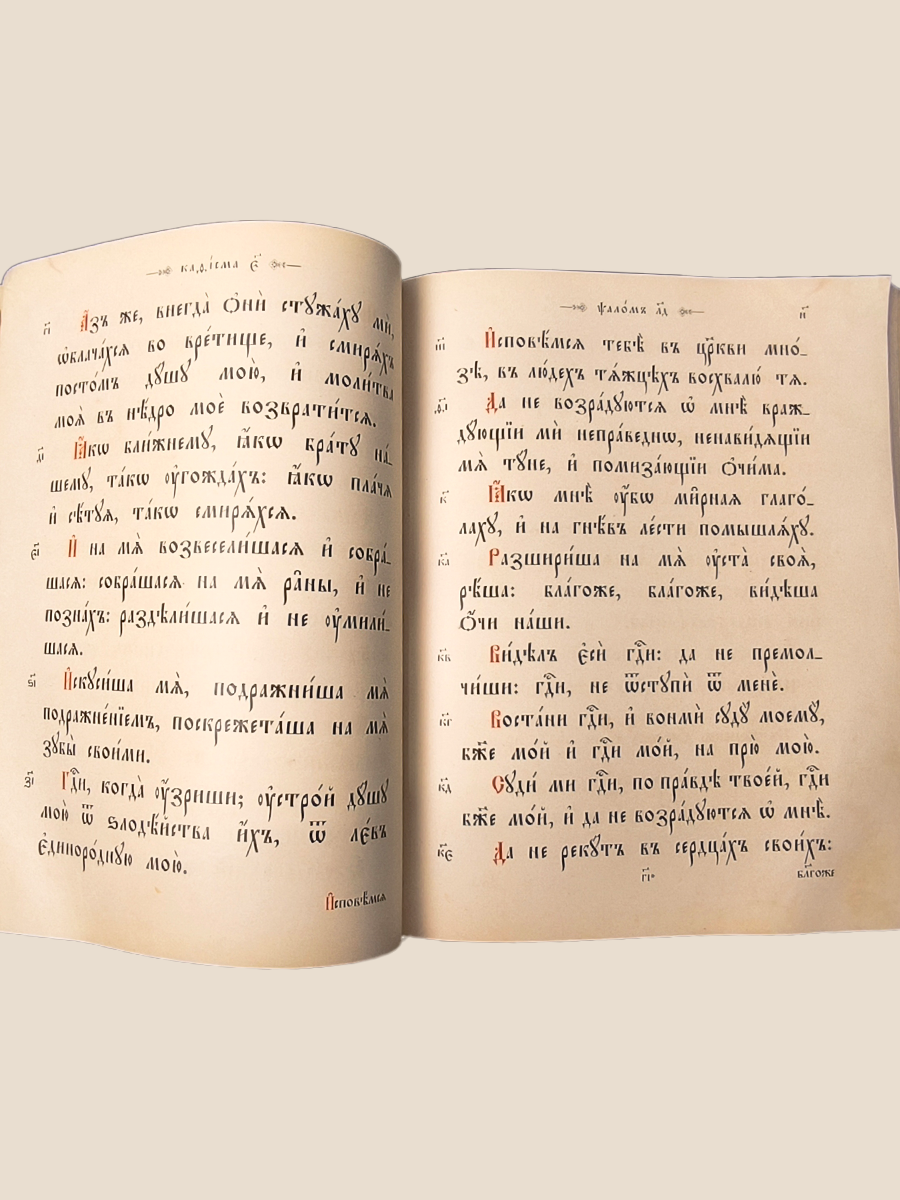 каѳі́сма є҃
г҃і А҆́зъ же, внегда̀ ѻ҆нѝ стꙋжа́хꙋ мѝ,
ѡ҆блача́хсѧ во вре́тище, и҆ смирѧ́хъ
посто́мъ дꙋ́шꙋ мою̀, и҆ моли́тва
моѧ̀ въ нѣ́дро моѐ возврати́тсѧ.
д҃і Ꙗ҆́кѡ бли́жнемꙋ, ꙗ҆́кѡ бра́тꙋ на́_
шемꙋ, та́кѡ ᲂу҆гожда́хъ: ꙗ҆́кѡ пла́чѧ
и҆ сѣ́тꙋѧ, та́кѡ смирѧ́хсѧ.
є҃і И҆ на мѧ̀ возвесели́шасѧ и҆ собра́_
шасѧ: собра́шасѧ на мѧ̀ ра̑ны, и҆ не
позна́хъ: раздѣли́шасѧ и҆ не ᲂу҆мили́_
шасѧ.
ѕ҃і И҆скꙋси́ша мѧ̀, подражни́ша мѧ̀
подражне́нїемъ, поскрежета́ша на мѧ̀
зꙋбы̀ свои́ми.
з҃і Гдⷭ҇и, когда̀ ᲂу҆́зриши; ᲂу҆стро́й дꙋ́шꙋ
мою̀ ѿ ѕлодѣ́йства и҆́хъ, ѿ ле́въ
є҆диноро́днꙋю мою̀.
И҆сповѣ́мсѧ
ѱало́мъ л҃д
н҃
и҃і И҆сповѣ́мсѧ тебѣ̀ въ цр҃кви мно́_
зѣ, въ лю́дехъ тѧ́жцѣхъ восхвалю́ тѧ.
ѳ҃і Да не возра́дꙋютсѧ ѡ҆ мнѣ̀ враж_
дꙋ́ющїи мѝ непра́веднѡ, ненави́дѧщїи
мѧ̀ тꙋ́не, и҆ помиза́ющїи ѻ҆чи́ма.
к҃ Ꙗ҆́кѡ мнѣ̀ ᲂу҆́бѡ ми̑рнаѧ глаго́_
лахꙋ, и҆ на гнѣ́въ ле́сти помышлѧ́хꙋ.
к҃а Разшири́ша на мѧ̀ ᲂу҆ста̀ своѧ̑,
рѣ́ша: бла́гоже, бла́гоже, ви́дѣша
ѻ҆́чи на́ши.
к҃в Ви́дѣлъ є҆сѝ гдⷭ҇и: да не премол_
чи́ши: гдⷭ҇и, не ѿстꙋпѝ ѿ менє̀.
к҃г Воста́ни гдⷭ҇и, и҆ вонмѝ сꙋдꙋ̀ моемꙋ̀,
бж҃е мо́й и҆ гдⷭ҇и мо́й, на прю̀ мою̀.
к҃д Сꙋди́ ми гдⷭ҇и, по пра́вдѣ твое́й, гдⷭ҇и
бж҃е мо́й, и҆ да не возра́дꙋютсѧ ѡ҆ мнѣ̀.
к҃є Да не рекꙋ́тъ въ сердца́хъ свои́хъ:
г҃і*
бла́гоже